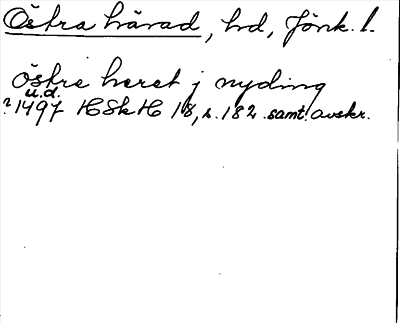 Östra härad, hd, Jönk. l.
östre heret j nyding
u.d.
?1497 HSkH 18, s. 182 samt. avskr.